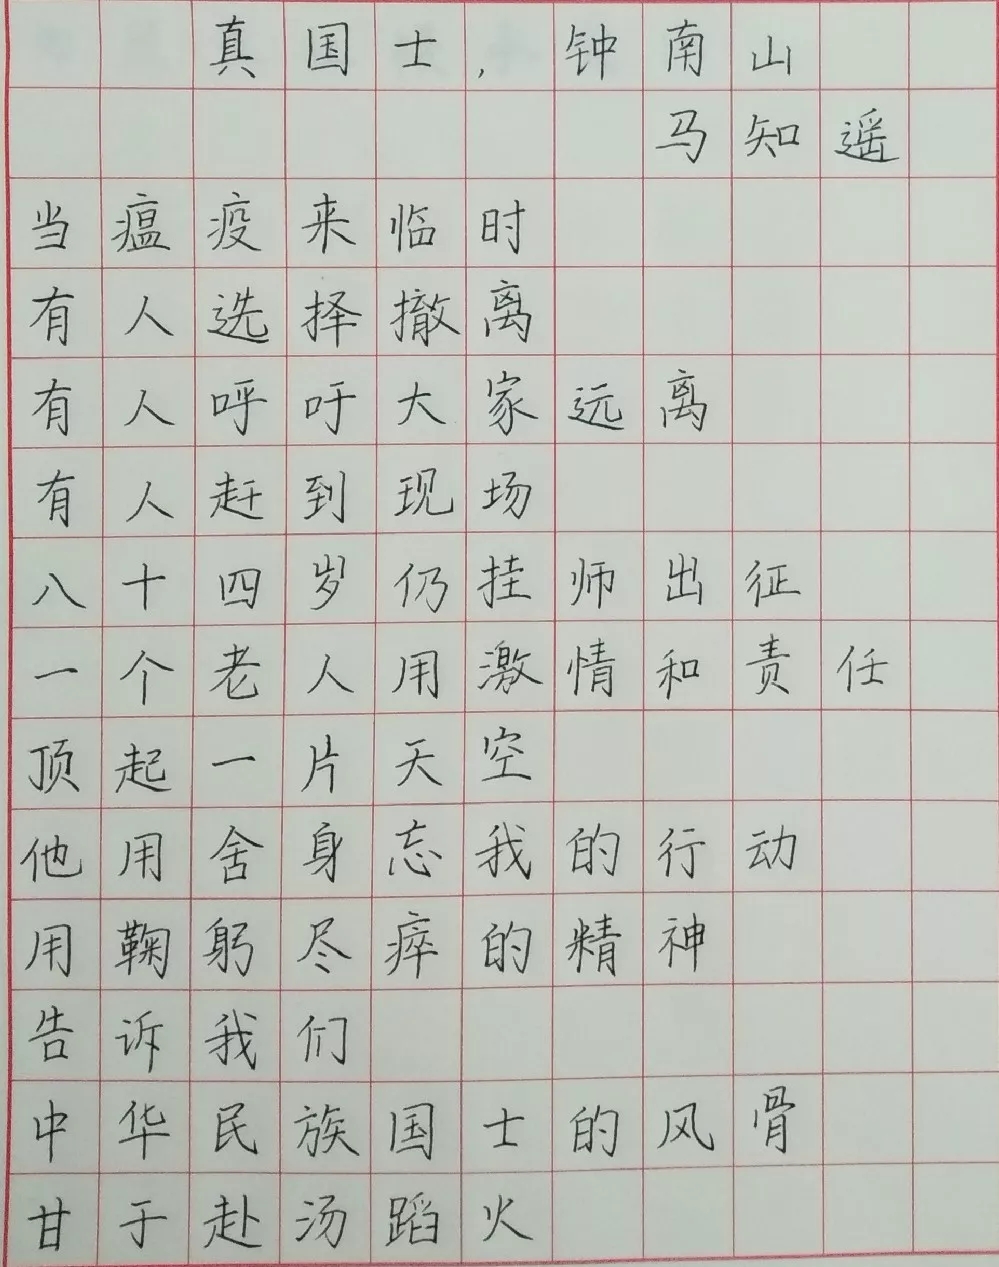 真国士，钟南山
马知遥
当瘟疫来临时
有人选择撤离
有人呼吁大家远离
有人赶到现场
八十四岁仍挂师出征
一个老人用激情和责任
顶起一片天空
他用舍身忘我的行动
用鞠躬尽瘁的精神
告诉我们
中华民族国士的风骨
甘于赴汤蹈火